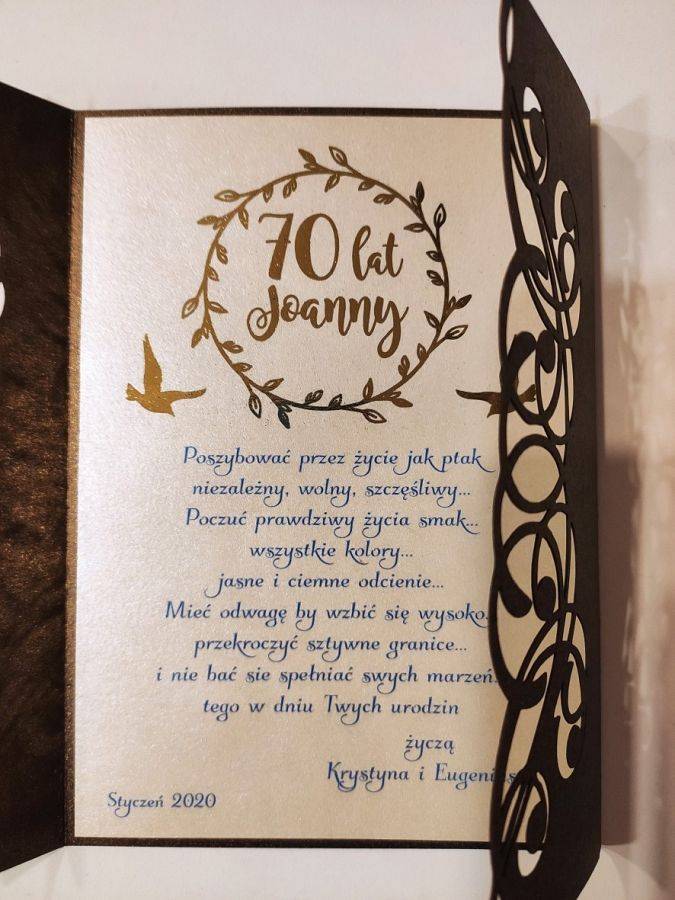 70 lat
Joanny
Poszybować przez życie jak ptak
niezależny, wolny, szczęśliwy...
Poczuć prawdziwy życia smak...
wszystkie kolory...
jasne i ciemne odcienie...
Mieć odwagę by wzbić się wysoko,
przekroczyć sztywne granice...
i nie bać sie spełniać swych marzeń.
tego w dniu Twych urodzin
życzą
Krystyna i
Styczeń 2020